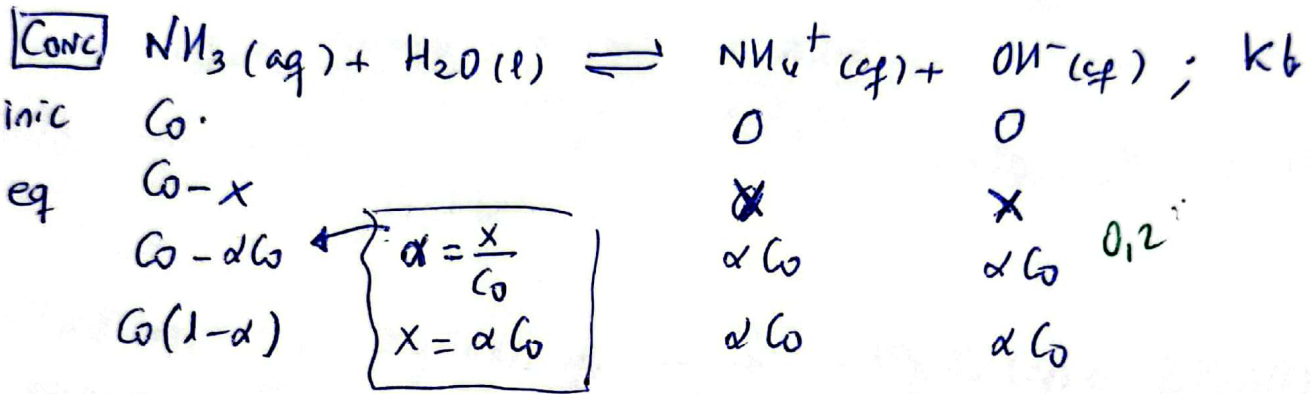 Conc NH₃ (aq) + H₂O (l) ⇌ NH₄⁺ (aq) + OH⁻ (aq) ; Kb
inic C₀ 0 0
eq C₀ - x x x
C₀ - αC₀ α = x/C₀ αC₀ αC₀ 0,2
C₀(1-α) x = αC₀ αC₀ αC₀